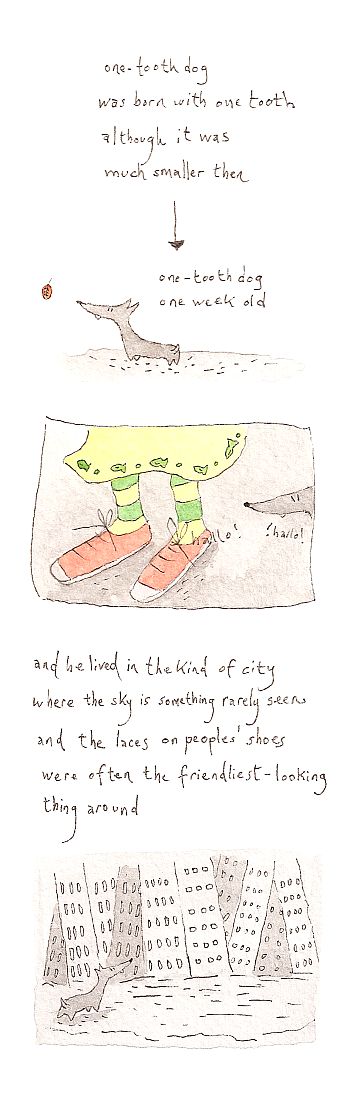 one-tooth dog
was born with one tooth
although it was
much smaller then
one-tooth dog
one week old
hallo! 'hallo!
and he lived in the kind of city
where the sky is something rarely seen
and the laces on peoples' shoes
were often the friendliest-looking
thing around